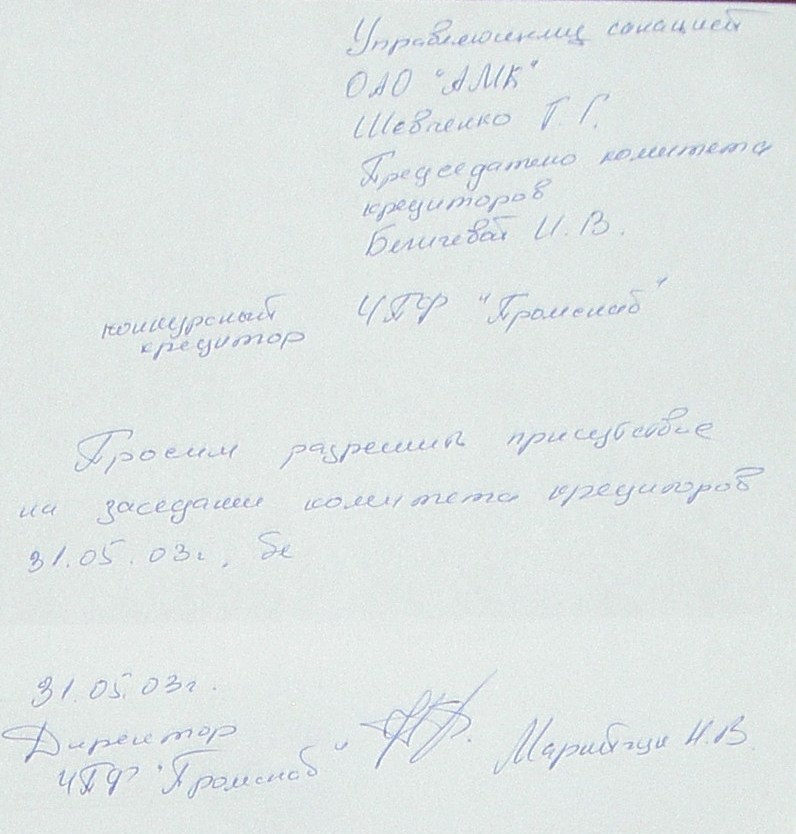 Управляющему санацией
ОАО "АМК"
Шевченко Т. Г.
Председателю комитета
кредиторов
Беличевой И. В.
конкурсный ЧПФ "Промснаб"
кредитор
Просим разрешить присутствие
на заседании комитета кредиторов
31.05.03г.
31.05.03г.
Директор
ЧПФ "Промснаб" И.В.